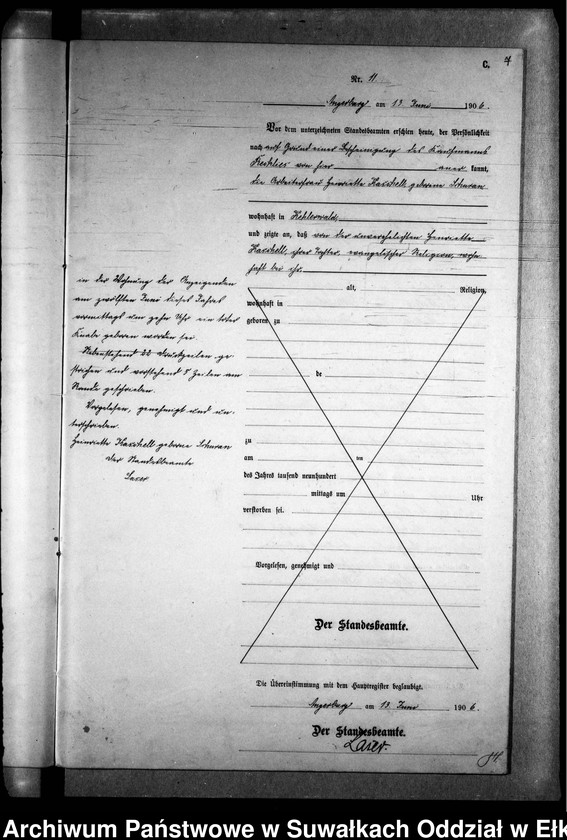 C.
Nr. 11
Angerburg am 13 Juni 1906.
Vor dem unterzeichneten Standesbeamten erschien heute, der Persönlichkeit
nach auf Grund einer Bescheinigung des Kaufmanns
von hier kannt,
die Arbeiterfrau Henriette geborene
wohnhaft in Kehlerwald,
und zeigte an, daß von der unverehelichten Henriette
ihrer Tochter, evangelischer Religion, wohn-
haft bei ihr.
alt, Religion,
wohnhaft in
geboren zu
de
zu
am ten
des Jahres tausend neunhundert
mittags um Uhr
verstorben sei.
Vorgelesen, genehmigt und
Der Standesbeamte.
in der Wohnung der Anzeigenden
am zwölften Juni dieses Jahres
vormittags um zehn Uhr ein toter
Knabe geboren worden sei.
Nebenstehend 22 Druckzeilen ge-
strichen und vorstehend Zeilen am
Rande geschrieben.
Vorgelesen, genehmigt und un-
terschrieben.
Henriette geborene
Der Standesbeamte
Die Übereinstimmung mit dem Hauptregister beglaubigt.
Angerburg am 13 Juni 1906.
Der Standesbeamte.
Archiwum Państwowe w Suwałkach Oddział w Ełk